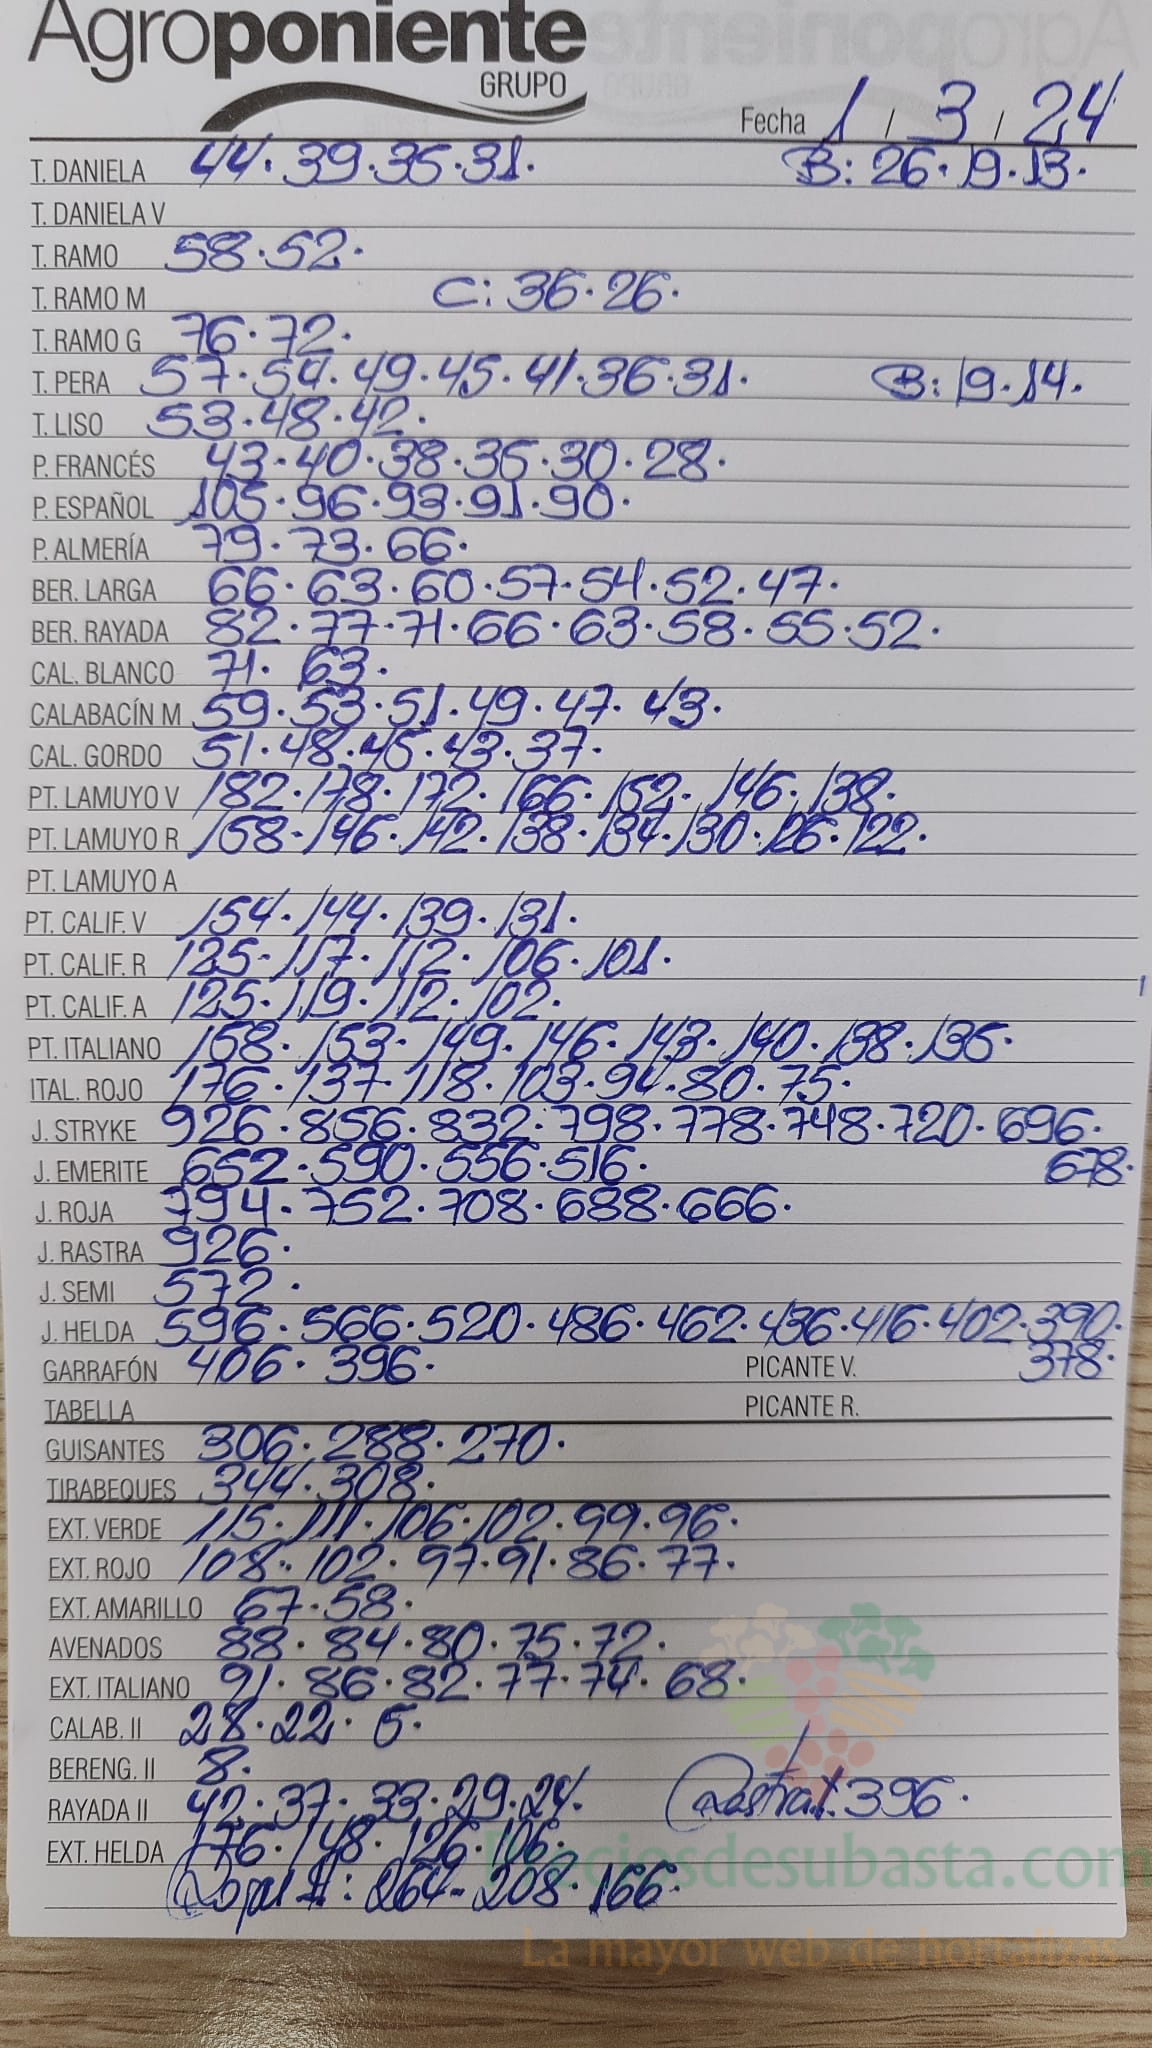 Agroponiente
GRUPO
Fecha 1 / 3 / 24
T. DANIELA 44. 39. 35. 31. B: 26. 19. 13.
T. DANIELA V
T. RAMO 58. 52.
T. RAMO M C: 36. 26.
T. RAMO G 76. 72.
T. PERA 57. 54. 49. 45. 41. 36. 31. B: 19. 14.
T. LISO 53. 48. 42.
P. FRANCÉS 43. 40. 38. 35. 30. 28.
P. ESPAÑOL 105. 96. 93. 91. 90.
P. ALMERÍA 79. 73. 66.
BER. LARGA 66. 63. 60. 57. 54. 52. 47.
BER. RAYADA 82. 77. 71. 66. 63. 58. 55. 52.
CAL. BLANCO 71. 63.
CALABACÍN M 59. 53. 51. 49. 47. 43.
CAL. GORDO 51. 48. 45. 43. 37.
PT. LAMUYO V 182. 178. 172. 166. 152. 146. 138.
PT. LAMUYO R 158. 146. 142. 138. 134. 130. 126. 122.
PT. LAMUYO A
PT. CALIF. V 154. 144. 139. 131.
PT. CALIF. R 125. 117. 112. 106. 101.
PT. CALIF. A 125. 119. 112. 102.
PT. ITALIANO 158. 153. 149. 146. 143. 140. 138. 135.
ITAL. ROJO 176. 137. 118. 103. 94. 80. 75.
J. STRYKE 926. 856. 832. 798. 778. 748. 720. 696.
J. EMERITE 652. 590. 556. 516. 678.
J. ROJA 794. 752. 708. 688. 666.
J. RASTRA 926.
J. SEMI 572.
J. HELDA 596. 566. 520. 486. 462. 436. 416. 402. 390.
GARRAFÓN 406. 396. PICANTE V. 378.
TABELLA PICANTE R.
GUISANTES 306. 288. 270.
TIRABEQUES 344. 308.
EXT. VERDE 115. 111. 106. 102. 99. 96.
EXT. ROJO 108. 102. 97. 91. 86. 77.
EXT. AMARILLO 67. 58.
AVENADOS 88. 84. 80. 75. 72.
EXT. ITALIANO 91. 86. 82. 77. 74. 68.
CALAB. II 28. 22. 5.
BERENG. II 8.
RAYADA II 42. 37. 33. 29. 24. 396.
EXT. HELDA 176. 148. 126. 106.
II: 264. 208. 166.
Preciosdesubasta.com
La mayor web de hortalizas